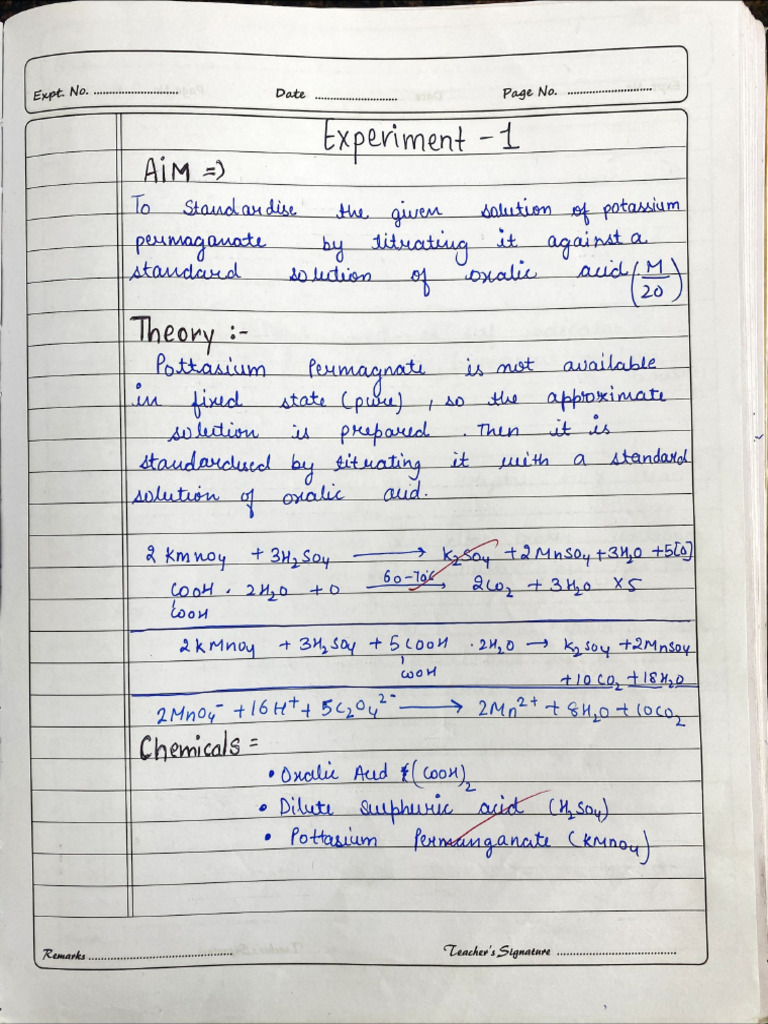 Expt. No. ............................ Date ............................ Page No. ............................
Experiment - 1
AiM =>
To standardise the given solution of potassium
permaganate by titrating it against a
standard solution of oxalic acid (M/20)
Theory :-
Pottasium Permagnate is not available
in fixed state (pure), so the approximate
solution is prepared. Then it is
standardused by titrating it with a standard
solution of oxalic acid.
2 kmno4 + 3H2SO4 → k2SO4 + 2MnSO4 + 3H2O + 5[O]
COOH . 2H2O + O 60-70°C → 2CO2 + 3H2O × 5
COOH
2 kMno4 + 3H2SO4 + 5 COOH . 2H2O → k2SO4 + 2MnSO4
COOH + 10 CO2 + 18H2O
2MnO4⁻ + 16H⁺ + 5C2O4²⁻ → 2Mn²⁺ + 8H2O + 10CO2
Chemicals =
• Oxalic Acid (COOH)2
• Dilute sulphuric acid (H2SO4)
• Pottasium Permanganate (KMnO4)
Remarks ............................ Teacher's Signature ............................